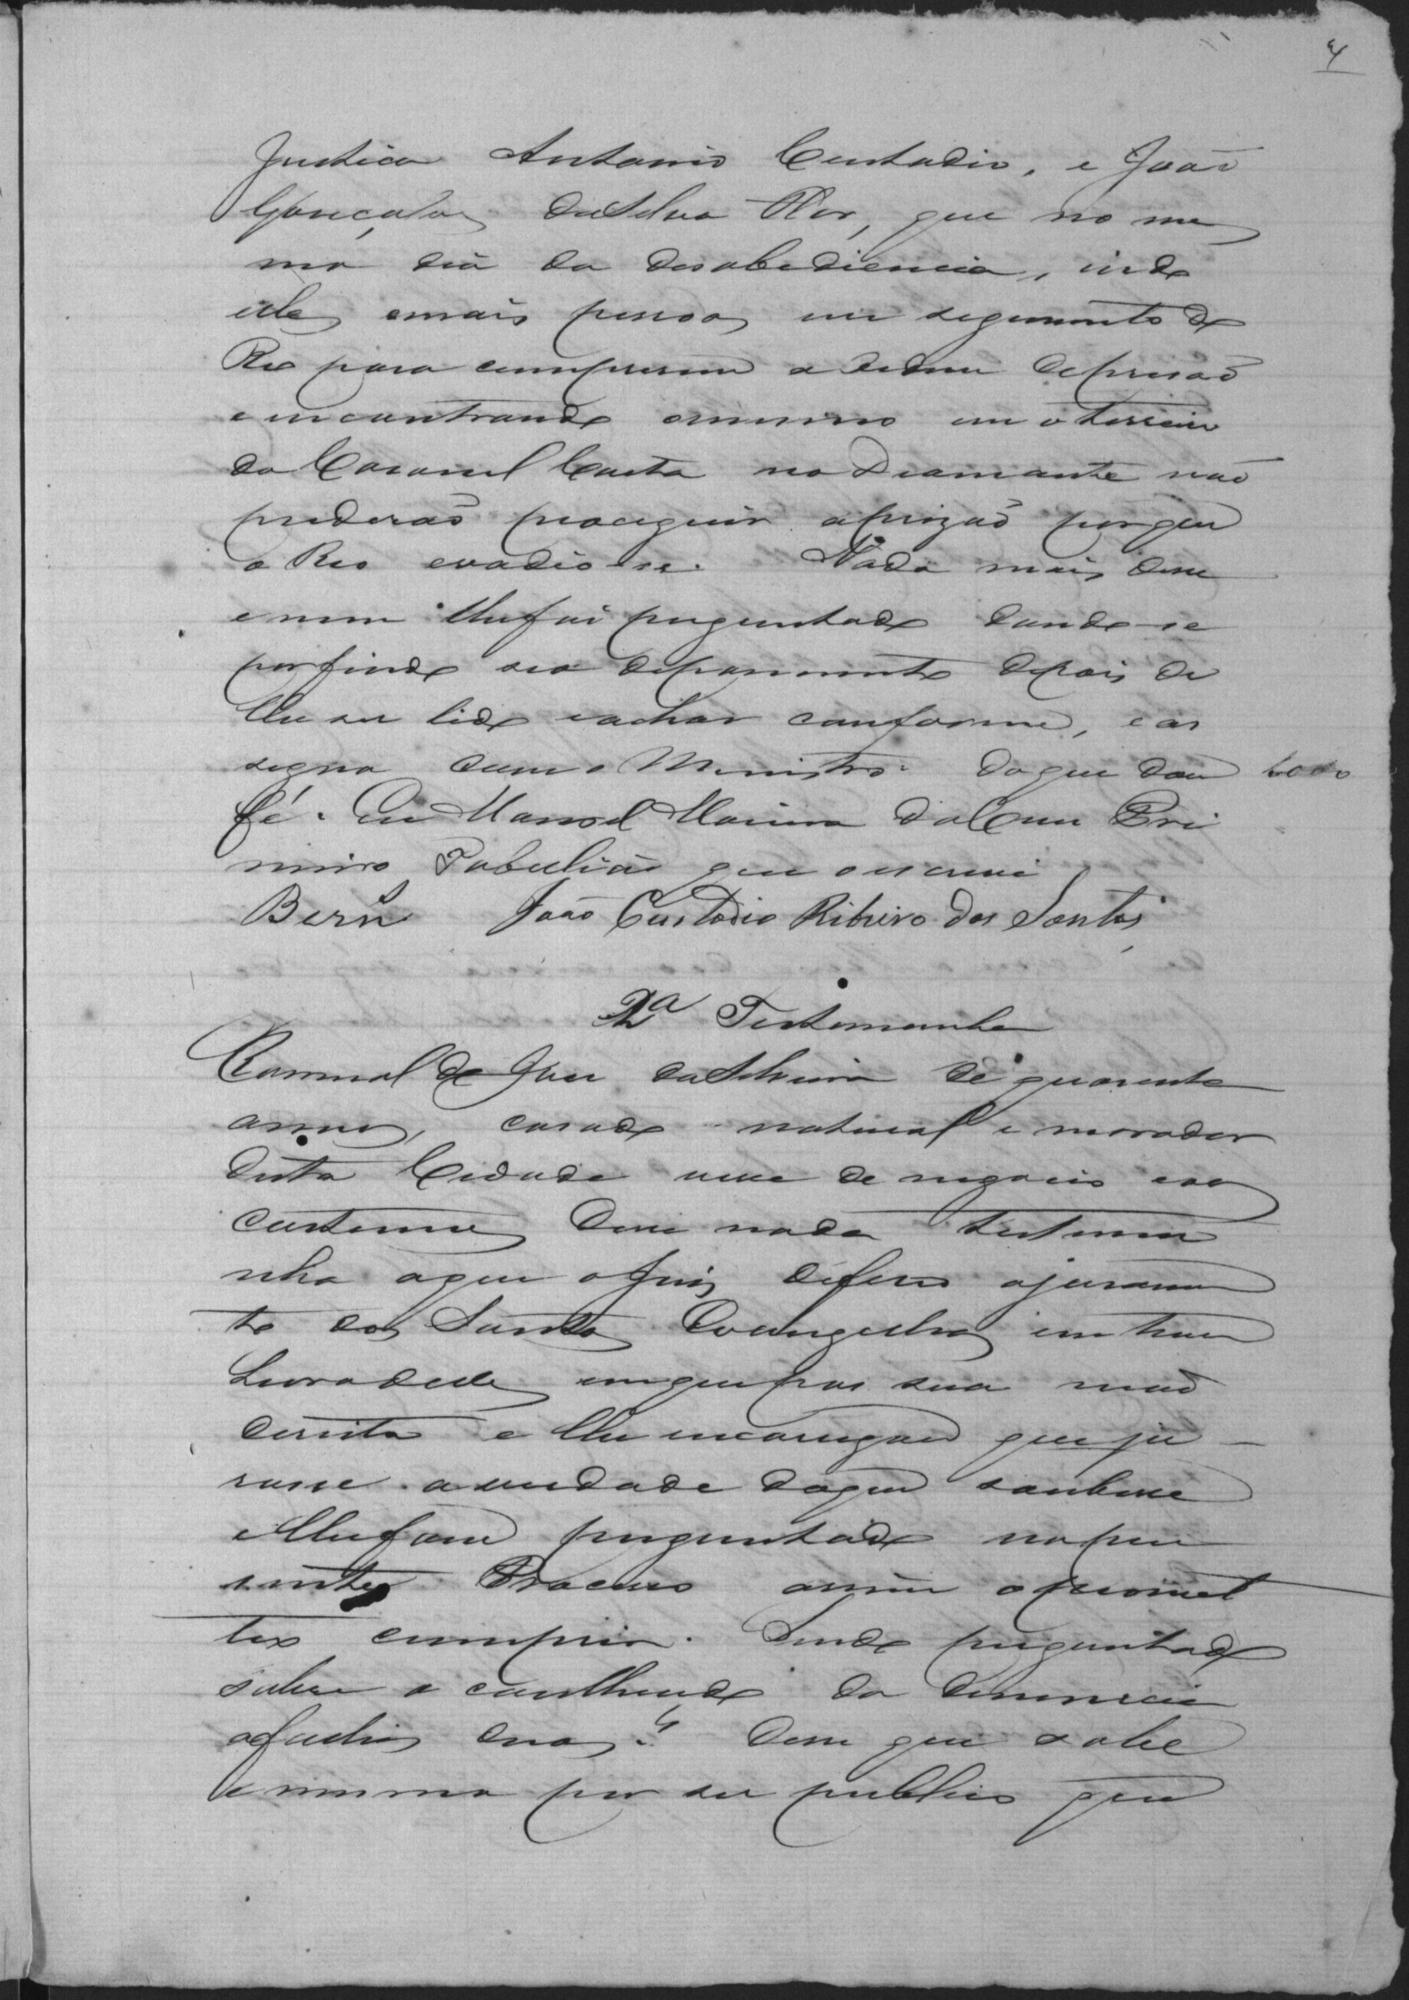 4
Justica Antonio Custodio, e João
Gonçalves da Silva Flor, que no mes
mo dia da desobediencia, indo
elle e mais pessoas em seguimento do
Reo para comprirem a ordem de prisão
e encontrando o mesmo em o terreiro
do Coronel Costa no Diamante não
puderão proceguir a prizão porque
o Reo evadio-se. Nada mais disse
e nem lhe foi perguntado dando-se
por findo seo depoimento depois de
lhe ser lido e achar conforme, e as
signa com o Ministro do que dou
fé. Eu Manoel Maria da Cruz Pri
meiro Tabelião que o escrevi
Bern João Custodio Ribeiro dos Santos
2a Testemunha
de quarenta
annos, casado natural e morador
desta Cidade vive de negocio e aos
costumes disse nada testemu
nha a que o Juis deferio o juramen
to dos Santos Evangelhos em hum
Livro delles em que pos sua mão
direita e lhe encarregou que ju
rasse a verdade do que soubesse
e lhe fosse perguntado no pre
sente Processo assim o promet
teo cumprir. Sendo perguntado
sobre o contheudo da denuncia
a folhas duas? Disse que sabe
e mesmo por ser publico que